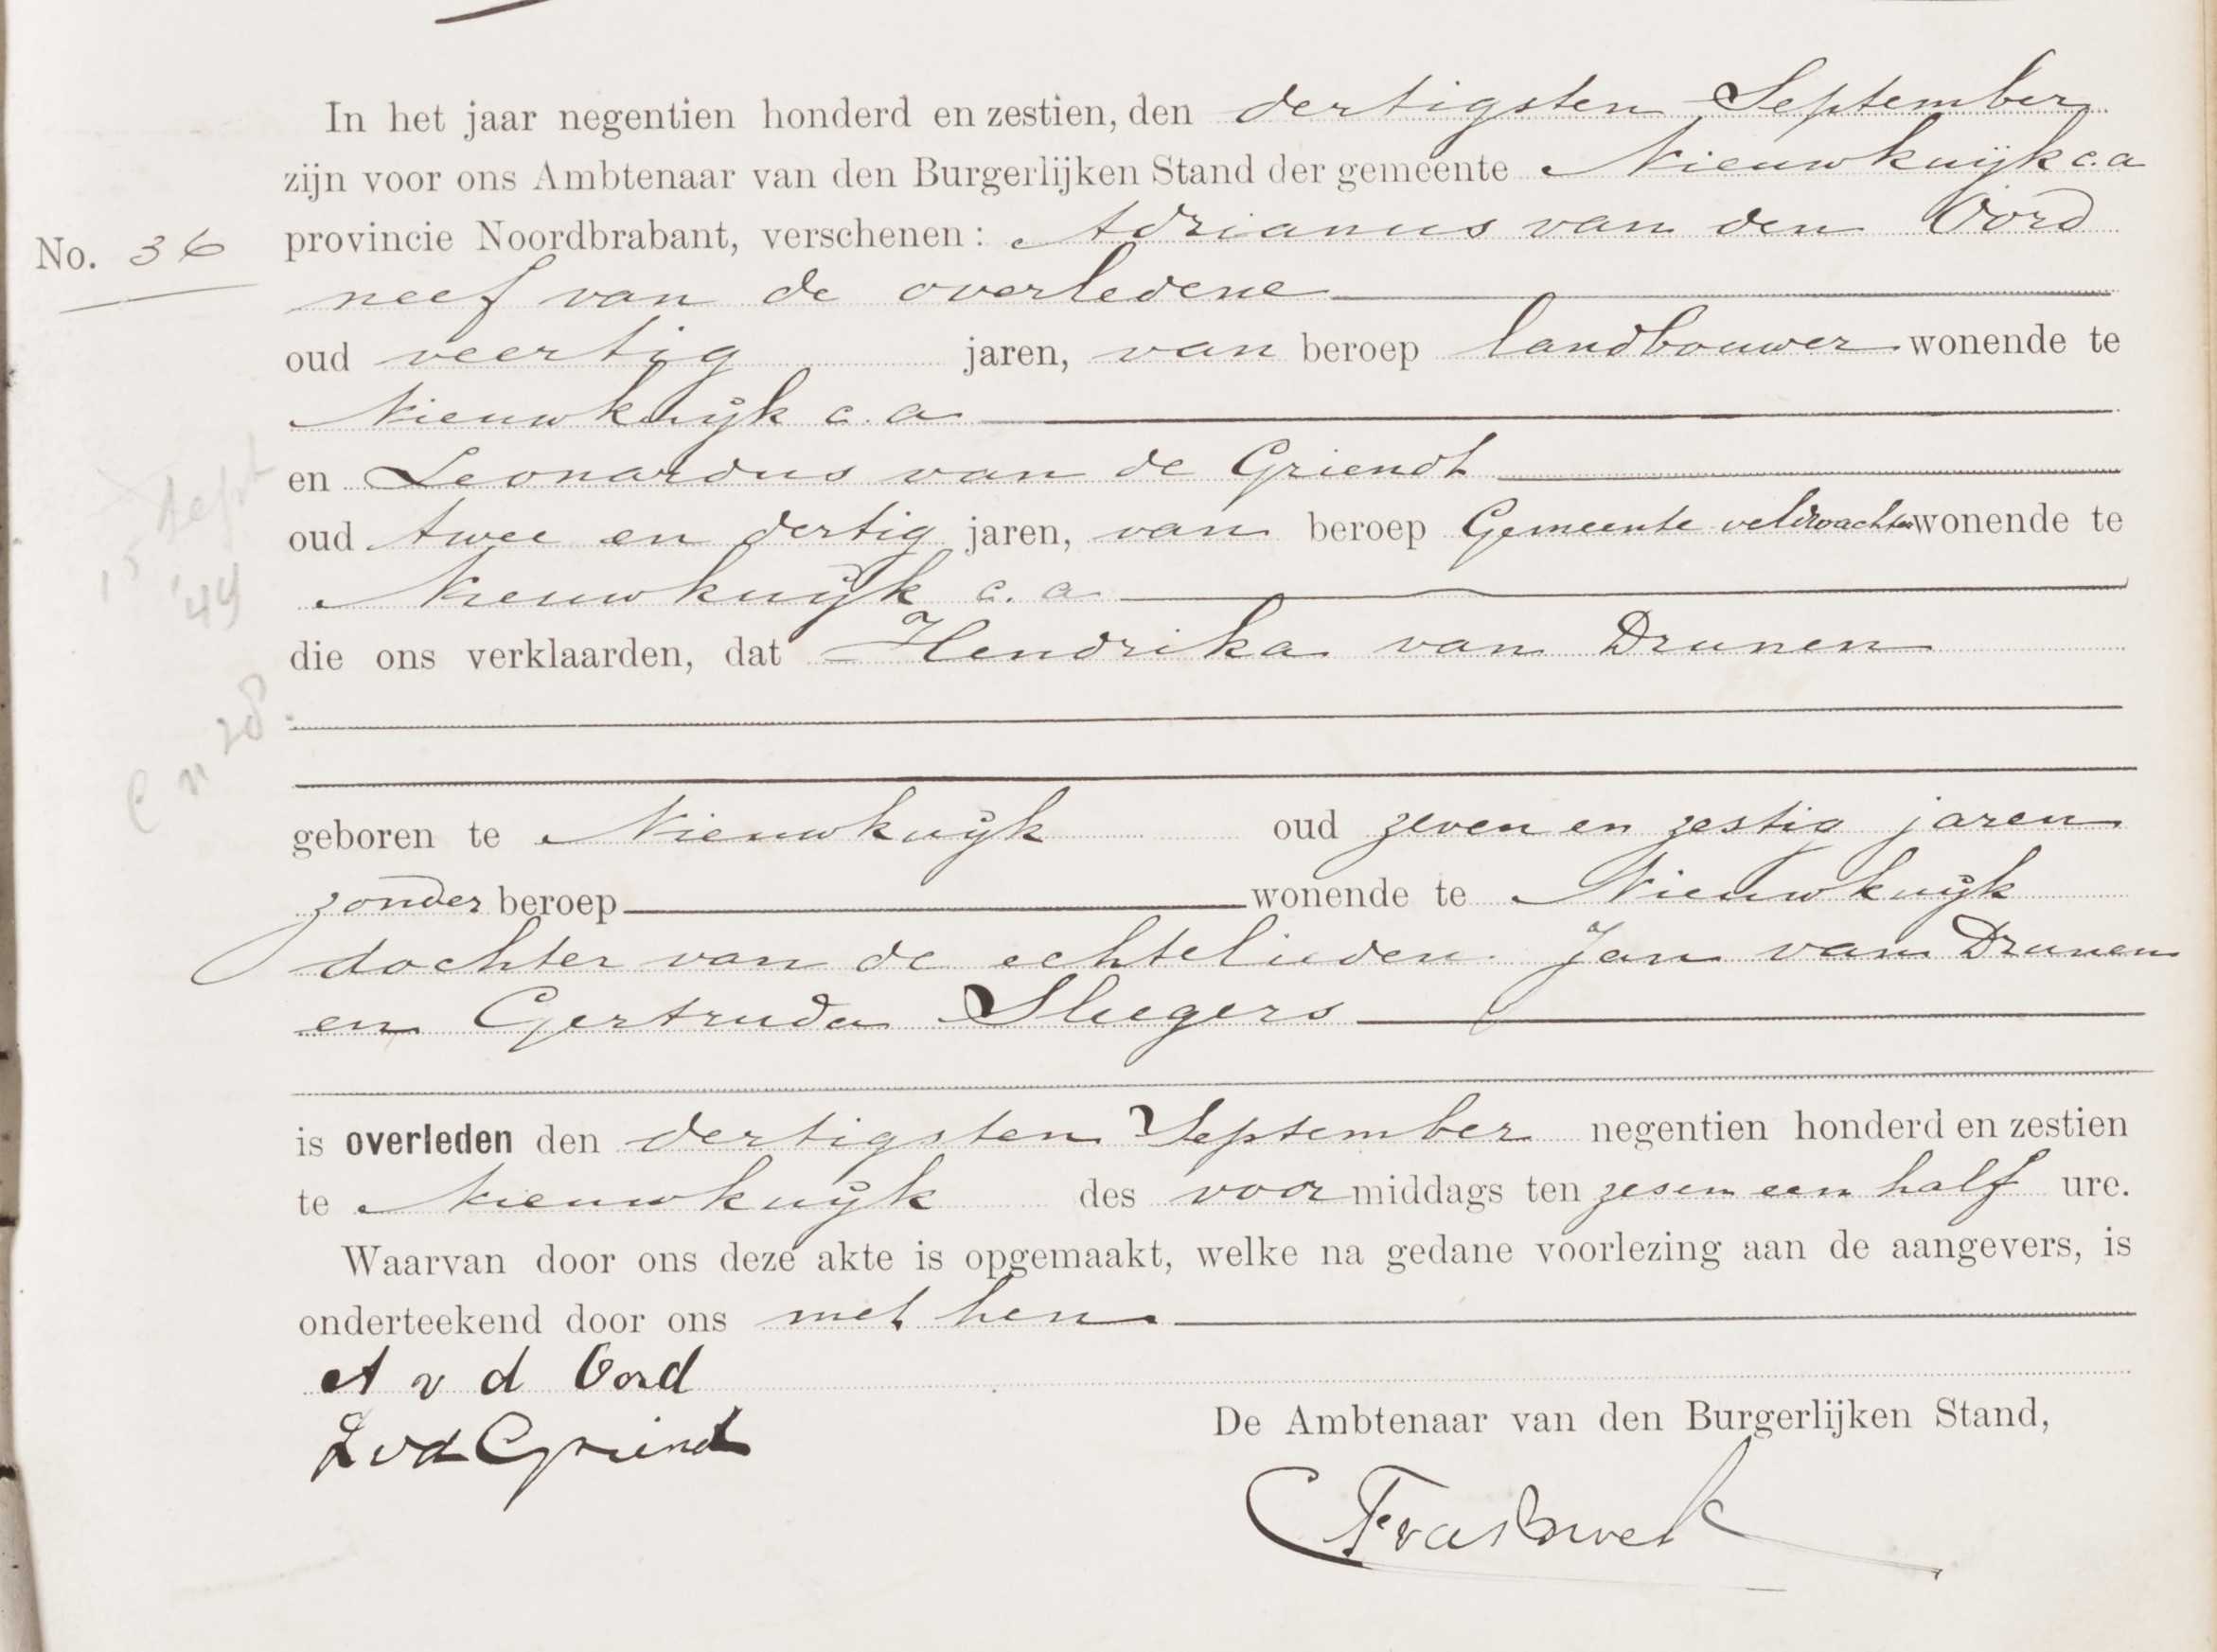 In het jaar negentien honderd en zestien, den dertigsten September
zijn voor ons Ambtenaar van den Burgerlijken Stand der gemeente Nieuwkuijk c.a
No. 36
provincie Noordbrabant, verschenen: Adrianus van den Oord
neef van de overledene
oud veertig jaren, van beroep landbouwer wonende te
Nieuwkuijk c.a
en Leonardus van de Griendt
oud twee en dertig jaren, van beroep Gemeente veldwachter wonende te
Nieuwkuijk c.a
die ons verklaarden, dat Hendrika van Drunen
15 Sept
'49
n 28.
geboren te Nieuwkuijk oud zeven en zestig jaren
zonder beroep wonende te Nieuwkuijk
dochter van de echtelieden Jan van Drunen
en Gertruda Sleegers
is overleden den dertigsten September negentien honderd en zestien
te Nieuwkuijk des voormiddags ten zes en een half ure.
Waarvan door ons deze akte is opgemaakt, welke na gedane voorlezing aan de aangevers, is
onderteekend door ons met hen.
A v d Oord
L vd Griendt
De Ambtenaar van den Burgerlijken Stand,